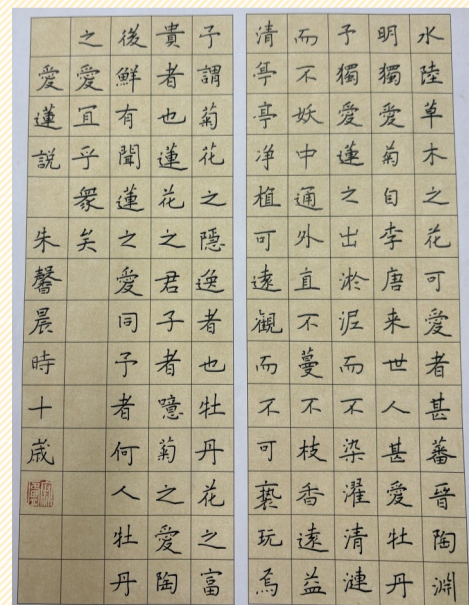 水陸草木之花可愛者甚蕃晉陶淵
明獨愛菊自李唐来世人甚愛牡丹
予獨愛蓮之出淤泥而不染濯清漣
而不妖中通外直不蔓不枝香遠益
清亭亭净植可遠觀而不可褻玩焉
予謂菊花之隱逸者也牡丹花之富
貴者也蓮花之君子者噫菊之愛陶
後鮮有聞蓮之愛同予者何人牡丹
之愛宜乎衆矣
愛蓮說 朱馨晨時十歲